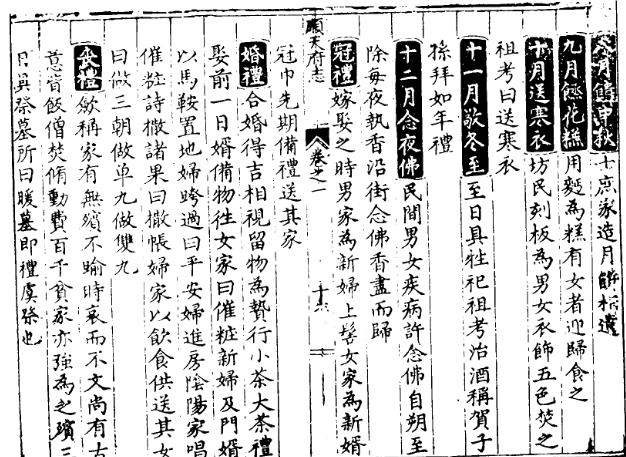 八月饋中秋 士庶家造月餅相遺
九月蒸花糕 用麵為糕有女者迎歸食之
十月送寒衣 坊民刻板為男女衣飾五色焚之
祖考曰送寒衣
十一月歌冬至 至日具牲祀祖考治酒稱賀子
孫拜如年禮
十二月念夜佛 民間男女疾病許念佛自朔至
除每夜執香沿街念佛香盡而歸
冠禮 嫁娶之時男家為新婦上髻女家為新婿
順天府志 卷之一 十六
冠巾先期備禮送其家
婚禮 合婚得吉相視留物為贄行小茶大茶禮
娶前一日婿備物往女家曰催粧新婦及門婿
以馬鞍置地婦跨過曰平安婦進房陰陽家唱
催粧詩撒諸果曰撒帳婦家以飲食供送其女
曰做三朝做單九做雙九
喪禮 斂稱家有無殯不踰時哀而不文尚有古
意皆飯僧焚脩動費百千貧家亦強為之殯三
日具祭墓所曰暖墓即禮虞祭也